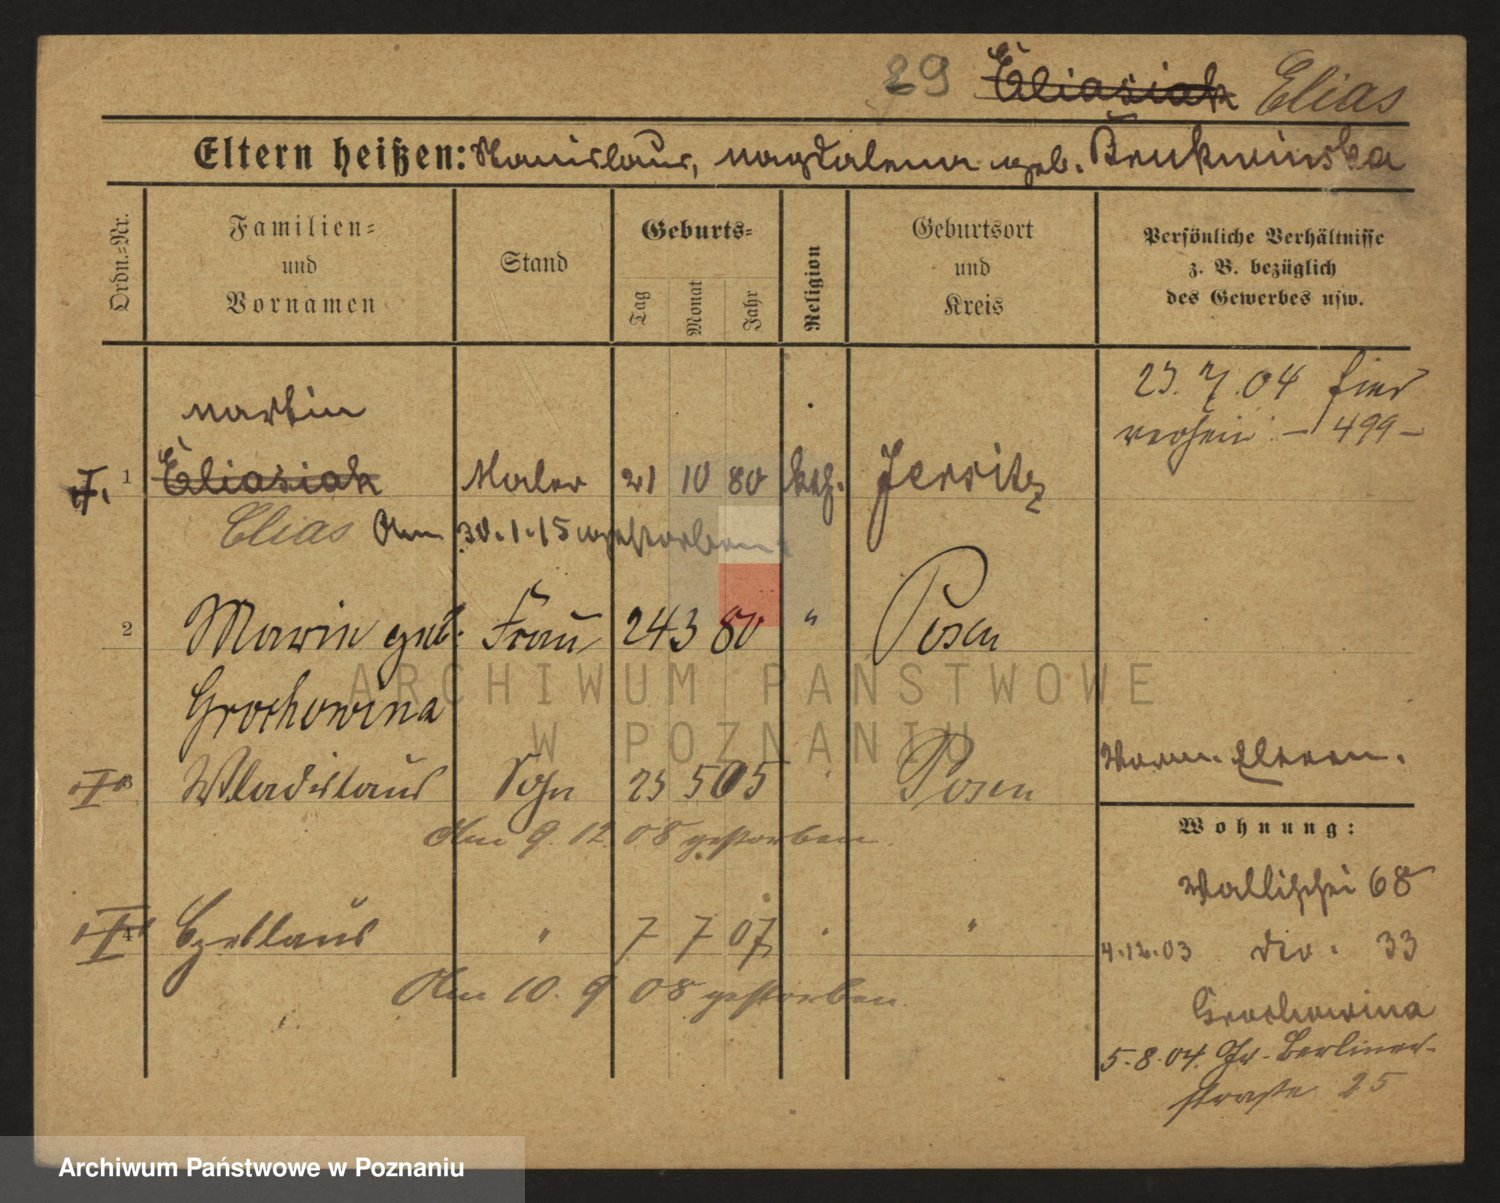 29 Eliasiak Elias
Eltern heißen: Stanislaus, Magdalena geb. Brukwinska
Ordn.-Nr.
Familien-
und
Vornamen
Stand
Geburts-
Tag
Monat
Jahr
Religion
Geburtsort
und
Kreis
Persönliche Verhältnisse
z. B. bezüglich
des Gewerbes usw.
23. 7. 04
– 499 –
Martin
1 Eliasiak Maler 21 10 80 kth. Jersitz
Elias Am 30.1.15 gestorben
2 Marie geb. Frau 24 3 80 " Posen
Grochowina
3 Wladislaus Sohn 23 5 05 Posen
Am 9. 12. 08 gestorben.
4 Czeslaus " 7 7 07 " "
Am 10. 9 08 gestorben.
Worm. Eltern.
Wohnung:
Wallischei 68
4.12.03 Div. 33
Grochowina
5.8.04. Gr. Berliner-
straße 25
ARCHIWUM PAŃSTWOWE
W POZNANIU
Archiwum Państwowe w Poznaniu